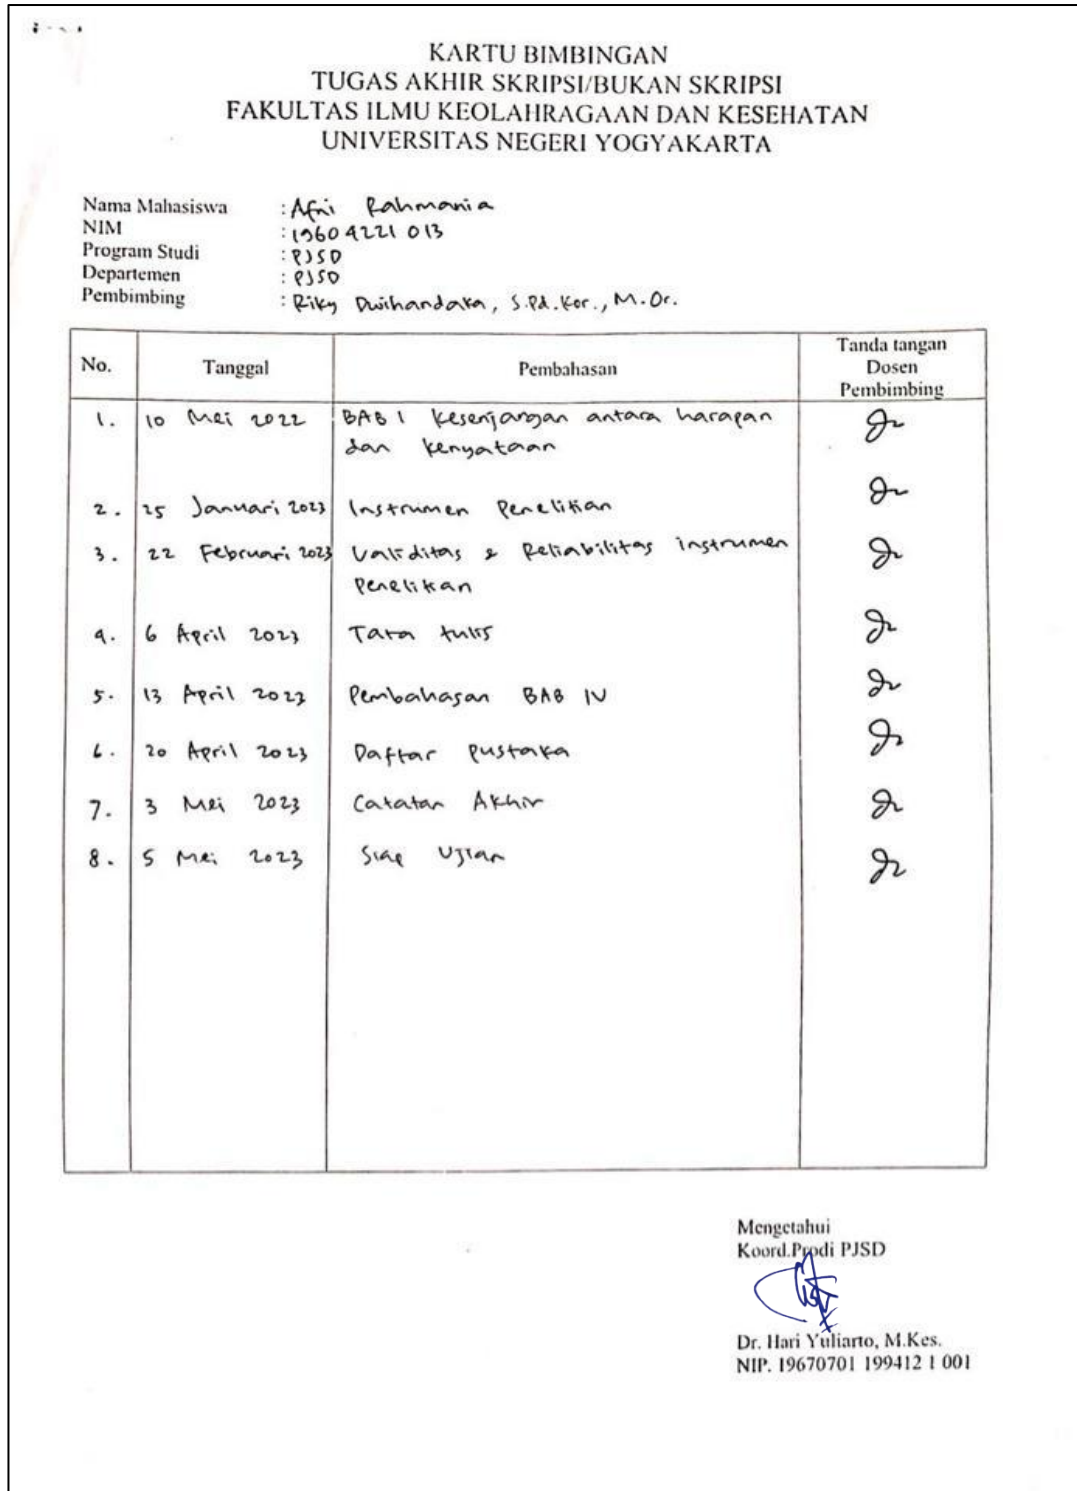 KARTU BIMBINGAN
TUGAS AKHIR SKRIPSI/BUKAN SKRIPSI
FAKULTAS ILMU KEOLAHRAGAAN DAN KESEHATAN
UNIVERSITAS NEGERI YOGYAKARTA
Nama Mahasiswa : Afni Rahmania
NIM : 19604221013
Program Studi : PJSD
Departemen : PJSD
Pembimbing : Riky Dwihandaka, S.Pd.Kor., M.Or.
No. Tanggal Pembahasan Tanda tangan
Dosen
Pembimbing
1. 10 Mei 2022 BAB I Kesenjangan antara harapan
dan kenyataan
2. 25 Januari 2023 Instrumen Penelitian
3. 22 Februari 2023 Validitas & Reliabilitas instrumen
Penelitian
4. 6 April 2023 Tata tulis
5. 13 April 2023 Pembahasan BAB IV
6. 20 April 2023 Daftar pustaka
7. 3 Mei 2023 Catatan Akhir
8. 5 Mei 2023 Siap Ujian
Mengetahui
Koord.Prodi PJSD
Dr. Hari Yuliarto, M.Kes.
NIP. 19670701 199412 1 001